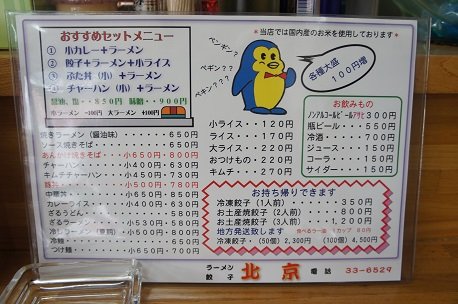 おすすめセットメニュー
① 小カレー+ラーメン
② 餃子+ラーメン+小ライス
③ ぶた丼(小)+ラーメン
④ チャーハン(小)+ラーメン
醤油、塩・・850円 味噌・・900円
小ラーメン-100円 大ラーメン+100円
焼きラーメン(醤油味)・・・・650円
ソース焼きそば・・・・・650円
あんかけ焼きそば・・小650円・800円
チャーハン・・・・・小400円・630円
キムチチャーハン・・小450円・730円
豚丼・・・・・・・・小500円・750円
中華丼・・・・・・・小650円・800円
カレーライス・・・・小400円・630円
ざるうどん・・・・・・・580円
ざるラーメン・・・・小530円・580円
冷しラーメン・・・小580円・680円
冷麺・・・・・・・・・650円
つけ麺・・・・・・小650円・700円
*当店では国内産のお米を使用しております*
ペンギン?
ペギン???
ペキン???
各種大盛
100円増
小ライス・・・120円
ライス・・・・170円
大ライス・・・220円
おつけもの・・220円
キムチ・・・・270円
お飲みもの
ノンアルコールビールアサヒ300円
瓶ビール・・・550円
冷酒・・・・・700円
ジュース・・・150円
コーラ・・・・150円
サイダー・・・150円
お持ち帰りできます
冷凍餃子(1人前)・・・・350円
お土産焼餃子(2人前)・・・800円
お土産焼餃子(3人前)・・1,200円
地方発送致します 食べるラー油 1カップ 80円
冷凍餃子・・(50個)2,300円 (100個)4,500円
ラーメン
餃子 北京 電話 33-6529